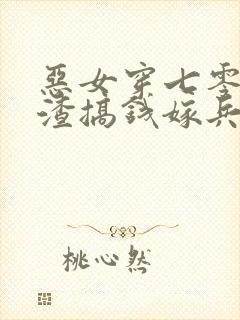 惡女穿七零
渣搞錢嫁兵
桃心然